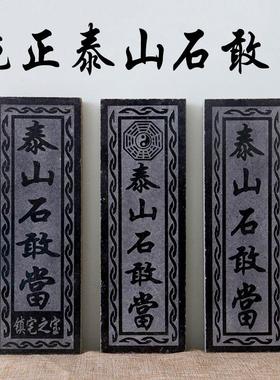 纯正泰山石敢
泰山石敢當
鎮宅之宝
泰山石敢當
泰山石敢當